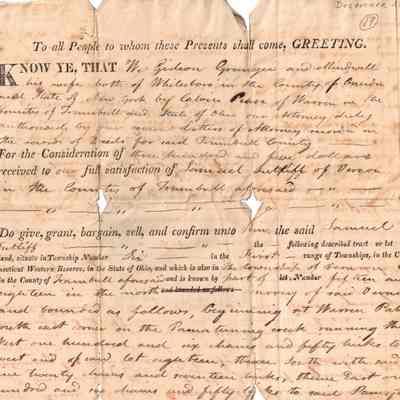 19
To all People to whom these Presents shall come, GREETING.
KNOW YE, THAT We Gideon Granger and Mindwell
his wife both of Whitesboro in the County of Oneida
and State of New York by Calvin Pease of Warren in the
County of Trumbull and State of Ohio our Attorney duly
authorised by Letters of Attorney
the records of Deeds for said Trumbull County
For the Consideration of three hundred and five dollars
received to our full satisfaction of Samuel Sutliff of Vernon
in the County of Trumbull aforesaid
Do give, grant, bargain, sell, and confirm unto him the said Samuel
Sutliff the following described tract or lot
land, situate in Township Number Six in the First range of Townships, in the
necticut Western Reserve, in the State of Ohio, and which is also in the township of Vernon
in the County of Trumbull aforesaid and is known by part of lot Number fifteen and
eighteen in the north survey of said Vernon
and bounded as follows, beginning at
east corner on the Pymatuning creek running th
West one hundred and six chains and fifty links to
west end of said lot eighteen, thence South with
twenty chains and seventeen links, thence East on
hundred and six chains and fifty links to said